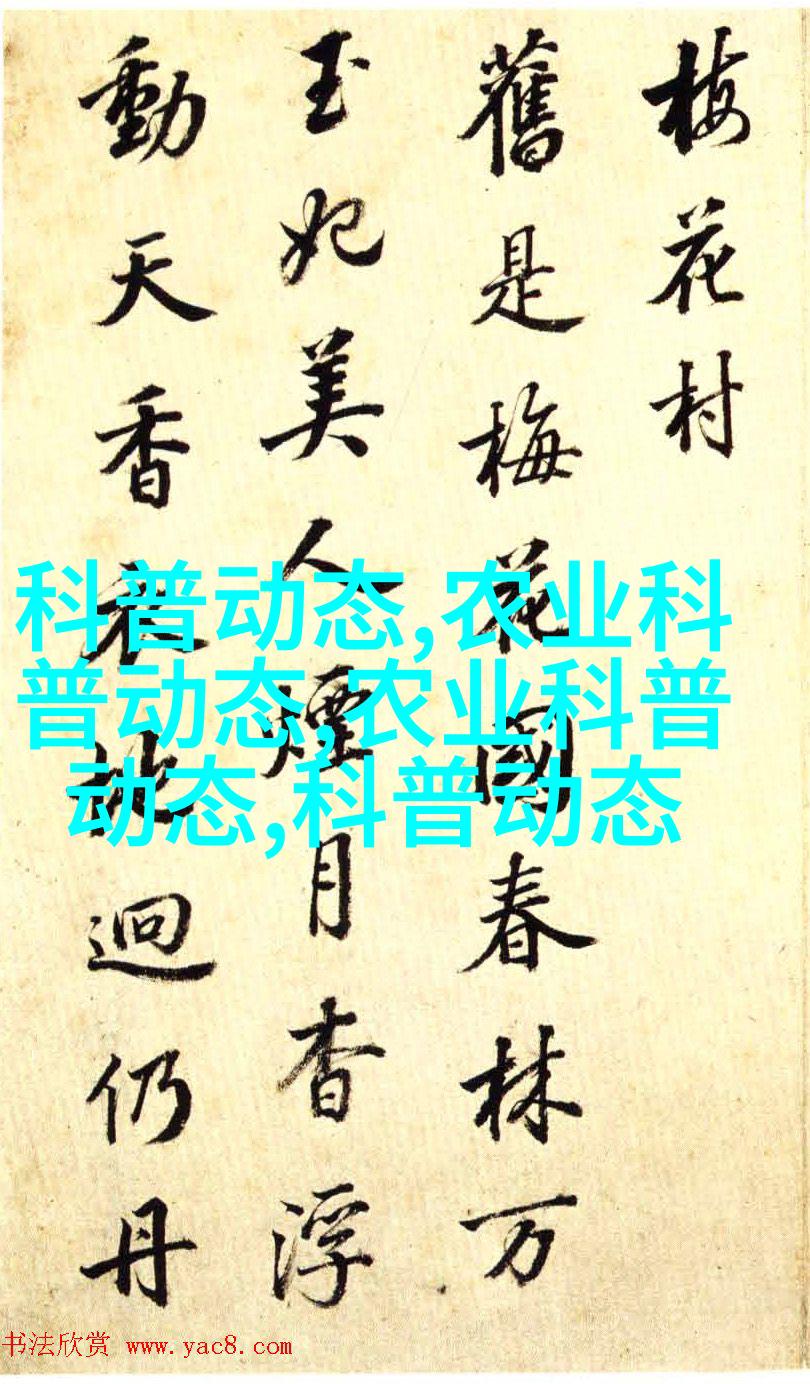 梅花村
舊是梅花國春林万
玉妃美人煙月杳浮
動天香地迥仍丹
科普动态,农业科
普动态,农业科普
动态,科普动态
书法欣赏 www.yac8.com